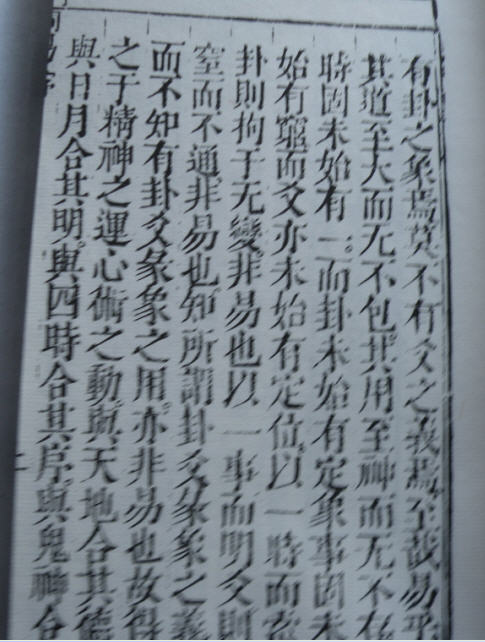 有卦之象焉莫不有爻之義焉至哉易乎
其道至大而无不包其用至神而无不存
時固未始有一而卦未始有定象事固未
始有窮而爻亦未始有定位以一時而索
卦則拘于无變非易也以一事而明爻則
窒而不通非易也知所謂卦爻彖象之義
而不知有卦爻彖象之用亦非易也故得
之于精神之運心術之動與天地合其德
與日月合其明與四時合其序與鬼神合